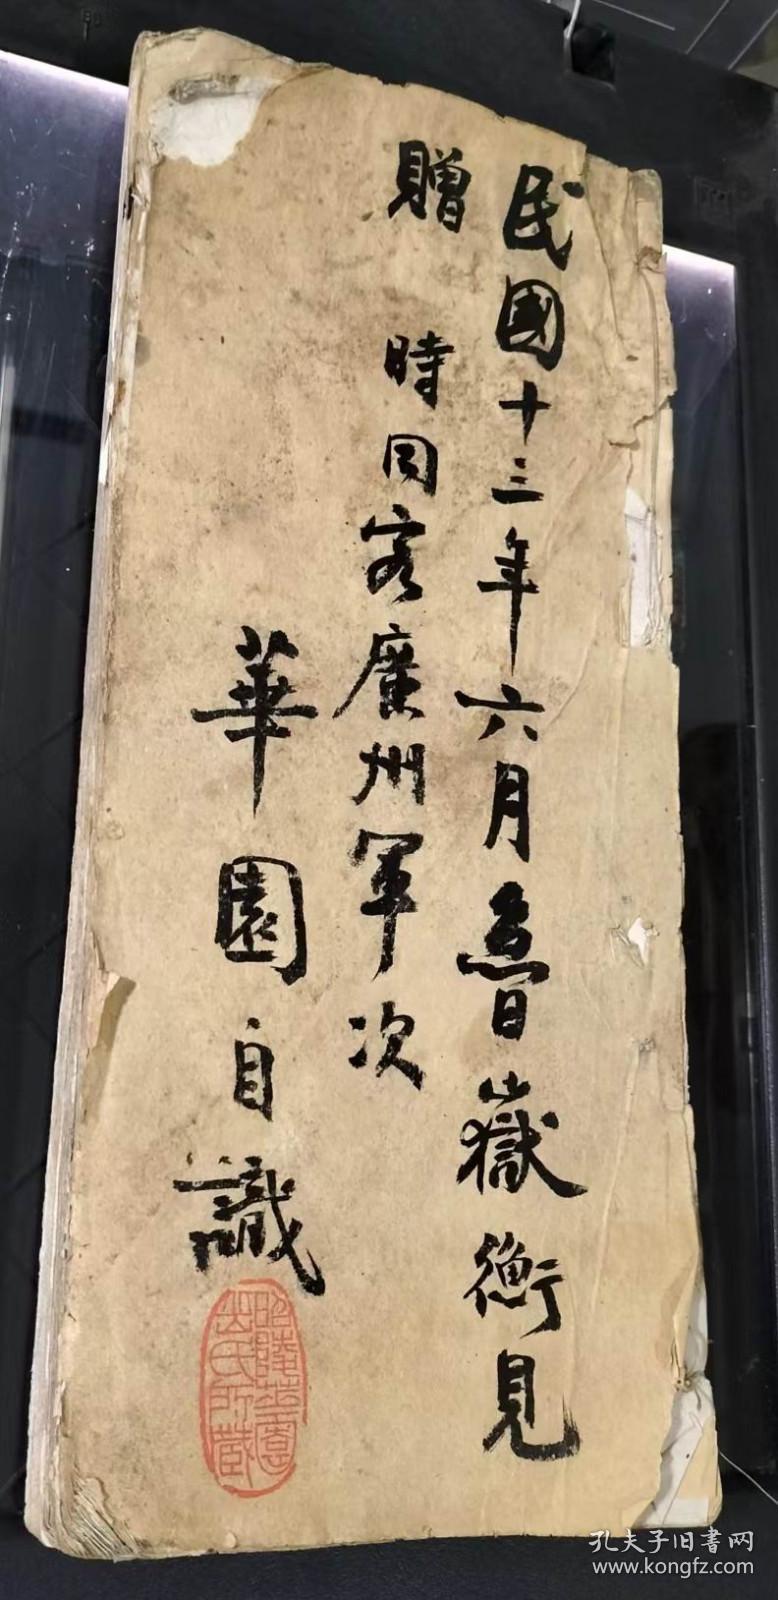 民國十三年六月魯嶽衡見
贈
時同客廣州軍次
華園自識
昭陵華園
岳氏所藏
孔夫子旧书网
www.kongfz.com